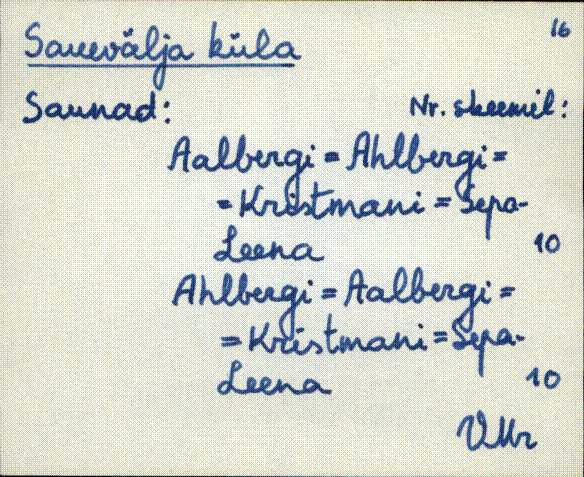 16
Sauevälja küla
Saunad: Nr. skeemil:
Aalbergi = Ahlbergi =
= Kristmani = Sepa-
Leena 10
Ahlbergi = Aalbergi =
= Kristmani = Sepa-
Leena 10